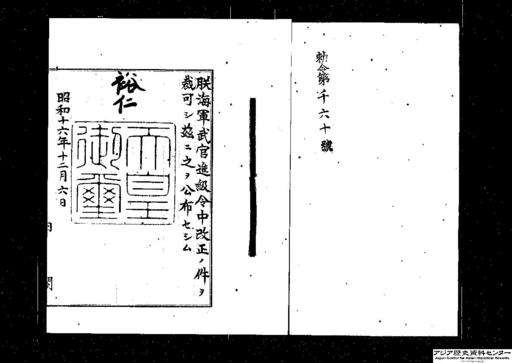 勅令第千六十號
朕海軍武官進級令中改正ノ件ヲ
裁可シ玆ニ之ヲ公布セシム
裕仁
天皇
御璽
昭和十六年十二月六日
内閣
アジア歴史資料センター
Japan Center for Asian Historical Records